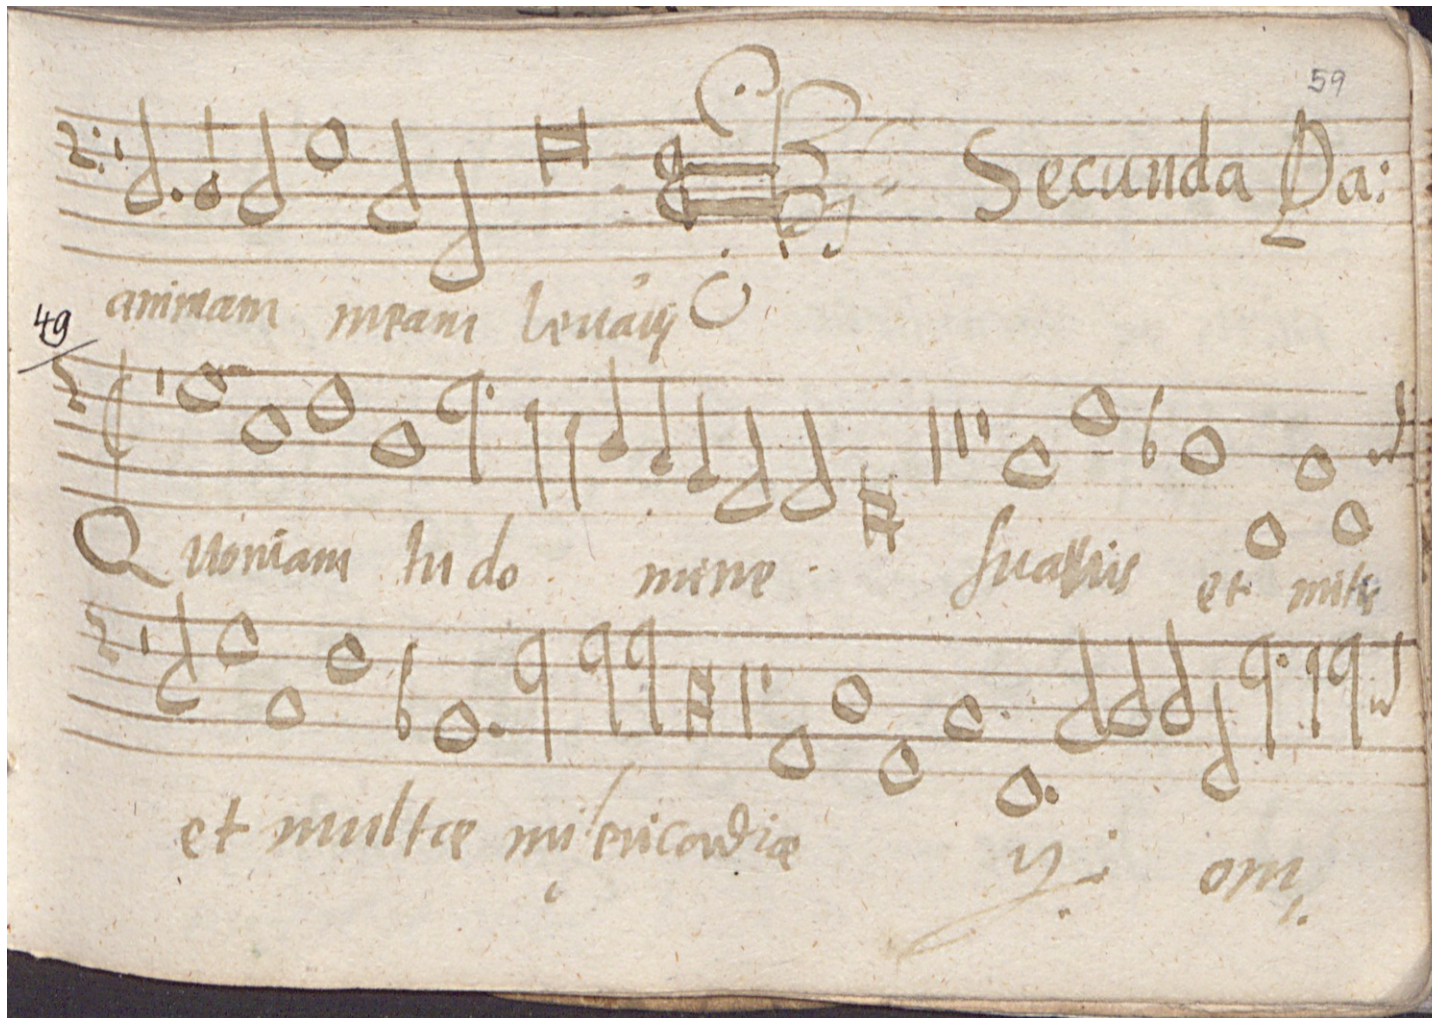 59
Secunda Pa:
animam meam levavi
49
Quoniam tu do mine suavis et mitis
et multae misericordiae ij om